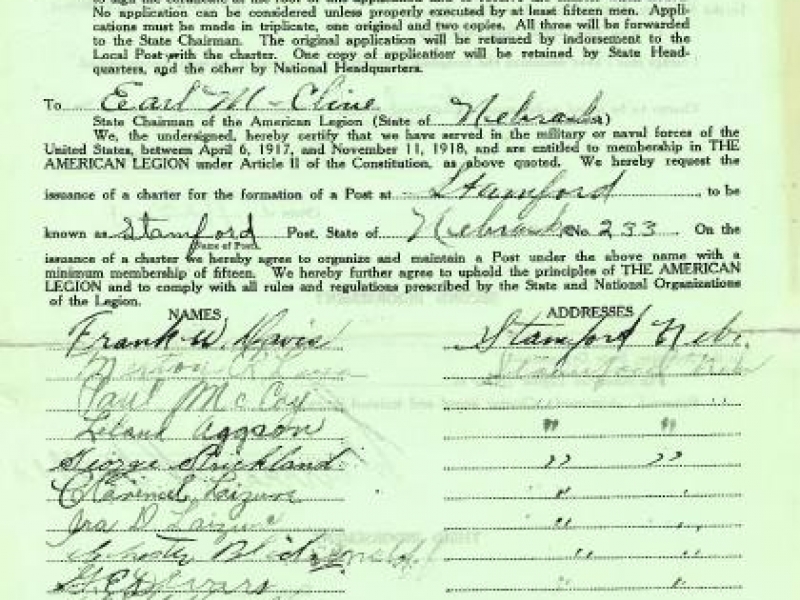 No application can be considered unless properly executed by at least fifteen men. Appli-
cations must be made in triplicate, one original and two copies. All three will be forwarded
to the State Chairman. The original application will be returned by indorsement to the
Local Post with the charter. One copy of application will be retained by State Head-
quarters, and the other by National Headquarters.
To Earl M Cline
State Chairman of the American Legion (State of Nebraska)
We, the undersigned, hereby certify that we have served in the military or naval forces of the
United States, between April 6, 1917, and November 11, 1918, and are entitled to membership in THE
AMERICAN LEGION under Article II of the Constitution, as above quoted. We hereby request the
issuance of a charter for the formation of a Post at Stamford, to be
known as Stamford Post, State of Nebraska No. 233. On the
Name of Post.
issuance of a charter we hereby agree to organize and maintain a Post under the above name with a
minimum membership of fifteen. We hereby further agree to uphold the principles of THE AMERICAN
LEGION and to comply with all rules and regulations prescribed by the State and National Organizations
of the Legion.
NAMES ADDRESSES
Frank W. Davis Stamford Nebr.
Stamford Neb
Paul McCoy "
Leland Aggson " "
George Strickland " "
Clarence Laizure " "
Ira D Laizure " "
" "
" "